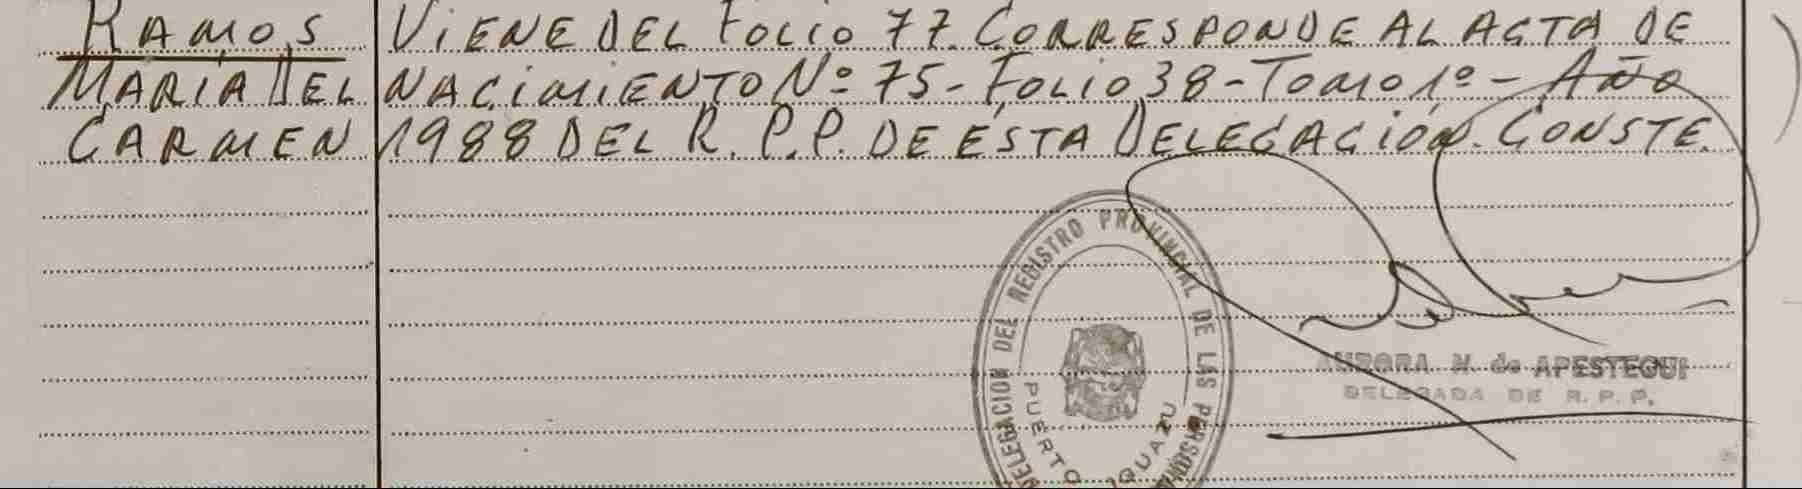 RAMOS
MARIA DEL
CARMEN
VIENE DEL FOLIO 77. CORRESPONDE AL ACTA DE
NACIMIENTO Nº 75 - FOLIO 38 - TOMO 1º - AÑO
1988 DEL R. P.P. DE ÉSTA DELEGACIÓN. CONSTE.
DELEGACION DEL REGISTRO PROVINCIAL DE LAS PERSONA
PUERTO IGUAZU
AURORA N. de APESTEGUI
DELEGADA DE R. P. P.